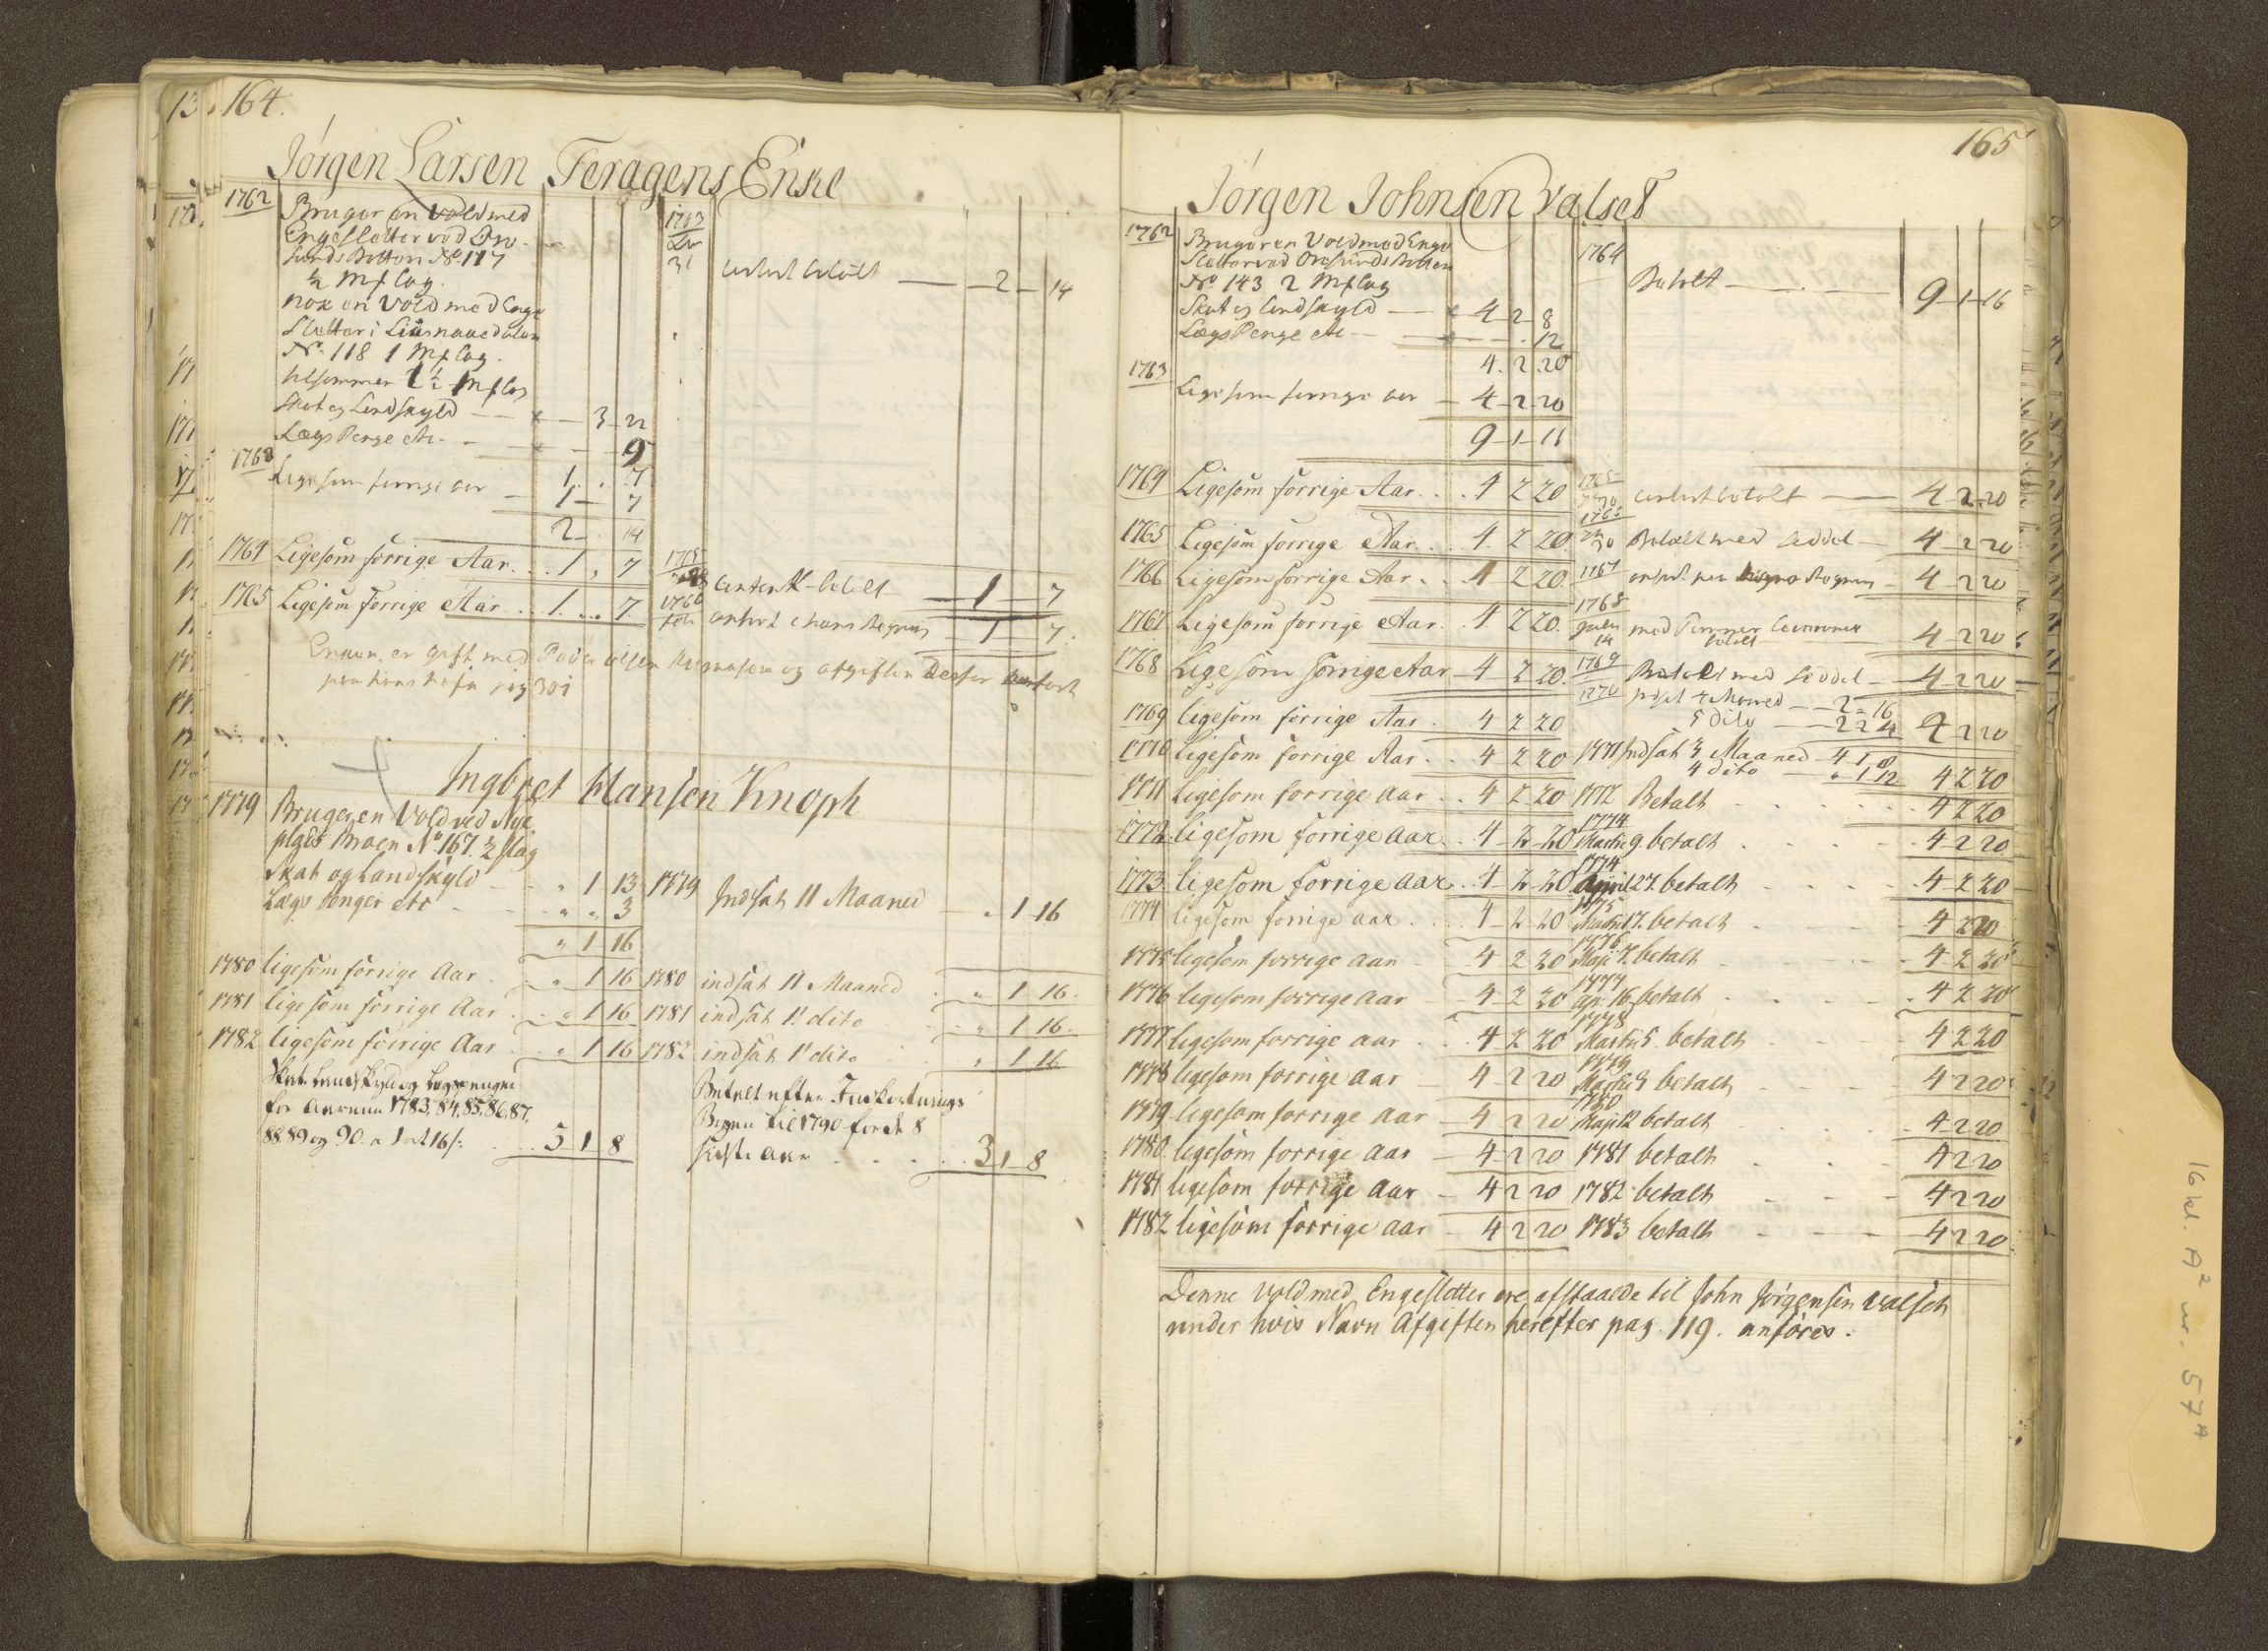 13
164.
Jörgen Larsen Feragens Enke
1762
Bruger en Vold med
Engesletter ved Ore-
sunds Botten No. 117
½ Mf lag.
nok en Vold med Enge
Sletter i
No. 118 1 Mf lag.
tilsammen 1½ Mf lag
Skat og Landskyld — 3 22
Lægs Penge etc. — 9
1 . 7
1763
Ligesom forrige aar — 1 — 7
2 — 14
1764 Ligesom forrige Aar . . 1 , 7
1765 Ligesom forrige Aar . . 1 . .. 7
1763
31
betalt — 2 — 14
1765
betalt — 1 — 7
1766
anført i hans Regning — 1 — 7.
Enken er gift med Peder Olsen og afgiften
pag 301
Ingbret Hansen Knoph
1779 Bruger en Vold ved Nye
Broen No. 167. ½ flag
Skat og Landskyld - - „ 1 13
Lægs Penger etc - - „ „ 3
„ 1 16
1780 ligesom forrige Aar . „ 1 16
1781 ligesom forrige Aar . . „ 1 16
1782 ligesom forrige Aar . . „ 1 16
Skat Landskyld og Lægspenger
for Aarene 1783, 84, 85, 86, 87,
88 89 og 90. a 1 ort 16 s: . . 3 1 8
1779 Indsat 11 Maaned — „ 1 16
1780 indsat 11 Maaned . „ 1 16.
1781 indsat 11 dito „ 1 16.
1782 indsat 11 dito . . „ 1 16
Betalt efter
Bogen til 1790 for de 8
sidste Aar . . . . 3 1 8
165
Jörgen Johnsen Valset
1762
Bruger en Vold med Enge
Sletter ved Oresunds Botten
No. 143 2 Mf lag
Skat og Landskyld — 4 2 8
Lægs Penge etc — . 12
4. 2 20
1763
Ligesom forrige aar — 4 — 2 — 20
9 — 1 — 16
1764 Ligesom forrige Aar. . . 4 2 20
1765 Ligesom forrige Aar . . 4 2 20.
1766 Ligesom forrige Aar . . 4 2 20.
1767 Ligesom forrige Aar . . 4 2 20.
1768 Ligesom forrige Aar — 4 2 20.
1769 ligesom forrige Aar . 4 2 20
1770 ligesom forrige Aar . . 4 2 20
1771 ligesom forrige aar . . 4 2 20
1772 ligesom forrige aar . . 4 2 20
1773 ligesom forrige aar . . 4 2 20
1774 ligesom forrige aar . . . 4 2 20
1775 ligesom forrige aar - 4 2 20
1776 ligesom forrige aar - 4 2 20
1777 ligesom forrige aar . . 4 2 20
1778 ligesom forrige aar 4 2 20
1779 ligesom forrige aar — 4 2 20
1780 ligesom forrige aar - 4 2 20
1781 ligesom forrige aar - 4 2 20
1782 ligesom forrige aar - 4 2 20
1764
Betalt — . — 9 — 1 — 16
1765
betalt — 4 2 20
1766
Betalt med Seddel — 4 2 20
1767 — 4 2 20
1768
July
14
med
betalt
4 2 20
1769 Betalt med Seddel — 4 2 20
1770 indsat Maaned — 2 — 16
5 dito — 2 2 4 4 2 20
1771 Indsat 7 Maaned 4 1 8
4 dito — „ 1 12 4 2 20
1772 Betalt . . . . 4 2 20
1774
Martii 9. betalt . . . 4 2 20
1774
April 27. betalt . . . 4 2 20
1775
Martii 17. betalt . . . 4 2 20
1776
Maji 7. betalt . . . 4 2 20
1777
Apr. 16 betalt . . . . 4 2 20
1778
Martii 5. betalt . . . 4 2 20
1779
Martii 9 betalt . . . 4 2 20
1780
Maji 12 betalt . . . . 4 2 20
1781 betalt . . . 4 2 20
1782 betalt - - - 4 2 20
1783 betalt - - - 4 2 20
Denne Vold med Engesletter ere afstaaede til John Jörgensen Valset
under hvis Navn Afgiften herefter pag. 119. anföres.
16 kl. A² nr. 57ᴬ